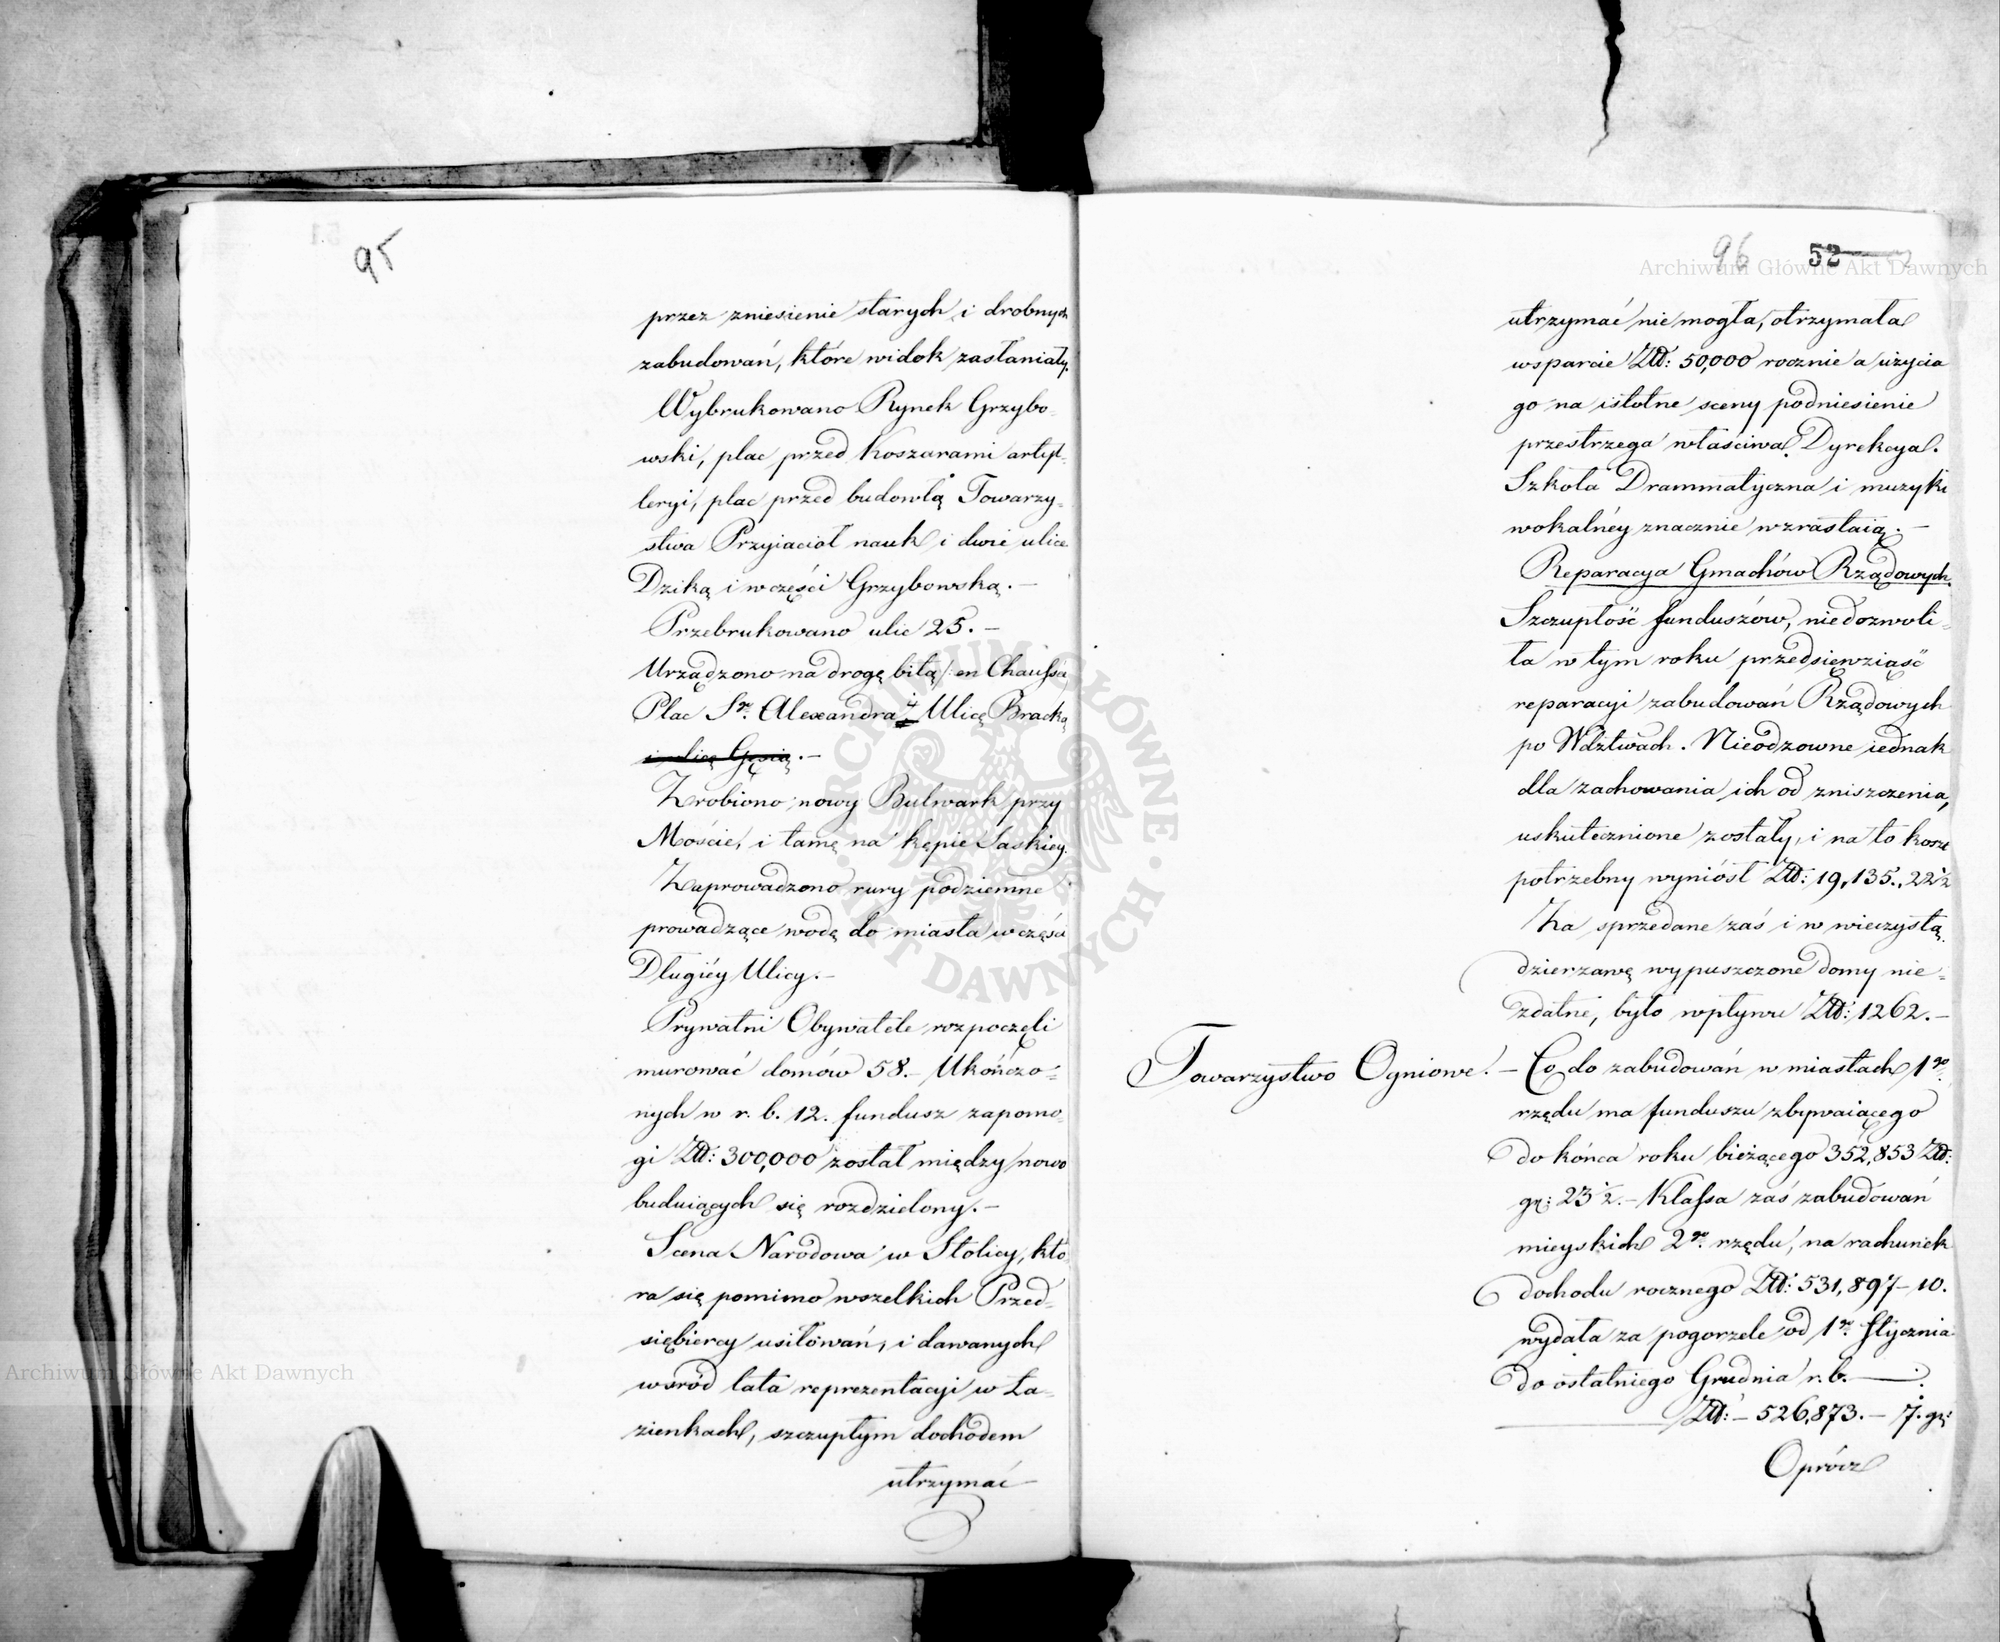 95
przez zniesienie starych i drobnych
zabudowań, które widok zasłaniały.
Wybrukowano Rynek Grzybo-
wski, plac przed Koszarami artyl-
leryi, plac przed budowlą Towarzy-
stwa Przyiaciół nauk i dwie ulice
Dziką i w części Grzybowską. —
Przebrukowano ulic 25. —
Urządzono na drogę bitą /: en Chaussée
Plac Sgo. Alexandra i Ulicę Bracką
i ulicę Gęsią. —
Zrobiono nowy Bulwark przy
Moście, i tamę na kępie Saskiey.
Zaprowadzono rury podziemne
prowadzące wodę do miasta w części
Długiéy Ulicy. —
Prywatni Obywatele rozpoczęli
murować domów 58. — Ukończo-
nych w r. b. 12. fundusz zapomo-
gi Złł: 300,000 został między nowo
buduiących się rozdzielony. —
Scena Narodowa w Stolicy, któ-
ra się pomimo wszelkich Przed-
siębiercy usiłowań, i dawanych
wśród lata reprezentacyi w Ła-
zienkach, szczupłym dochodem
utrzymać
96 52
utrzymać nie mogła, otrzymała
wsparcie Złł: 50,000 rocznie a użycia
go na istotne sceny podniesienie
przestrzega właściwa Dyrekcya.
Szkoła Drammatyczna i muzyki
wokalnéy znacznie wzrastaią. —
Reparacya Gmachów Rządowych.
Szczupłość funduszów, niedozwoli-
ła w tym roku przedsięwziąść
reparacyi zabudowań Rządowych
po Wdztwach. Nieodzowne iednak
dla zachowania ich od zniszczenia,
uskutecznione zostały, i na to koszt
potrzebny wyniósł Złł: 19,135., 22 1/2
Za sprzedane zaś i w wieczystą
dzierzawę wypuszczone domy nie-
zdatne, było wpływu Złł: 1262. —
Towarzystwo Ogniowe. — Co do zabudowań w miastach 1go.
rzędu ma funduszu zbywaiącego
do końca roku bieżącego 352,853 Złł:
gr: 23 1/2. — Klassa zaś zabudowań
mieyskich 2go. rzędu, na rachunek
dochodu rocznego Złł: 531,897 — 10.
wydała za pogorzele od 1go. Stycznia
do ostatniego Grudnia r. b. —
Złł: — 526,873. — 7. gr:
Oprócz
Archiwum Główne Akt Dawnych
Archiwum Główne Akt Dawnych
ARCHIWUM GŁÓWNE · AKT DAWNYCH ·